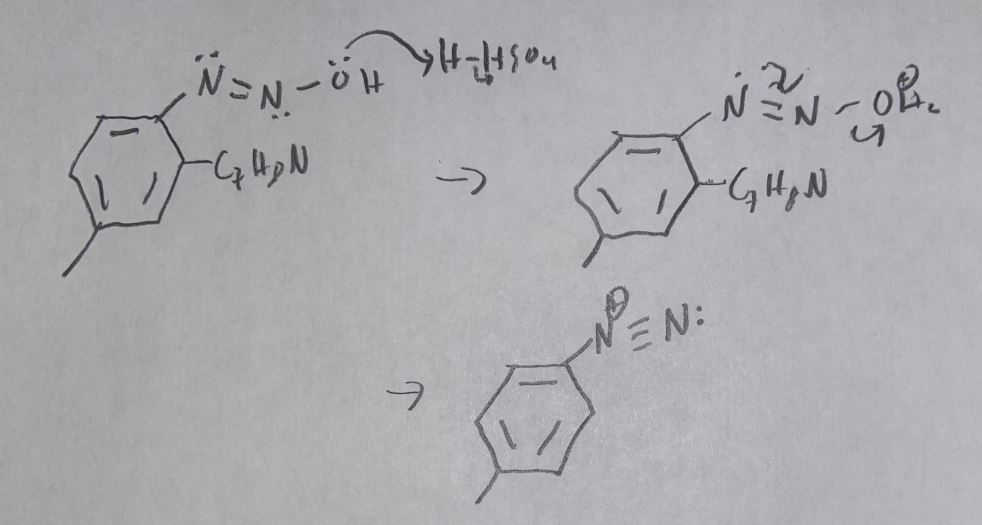 N̈=N̈-ÖH H-HSO4
C7H8N
→
N=N-O⊕H2
C7H8N
→
N⊕≡N: